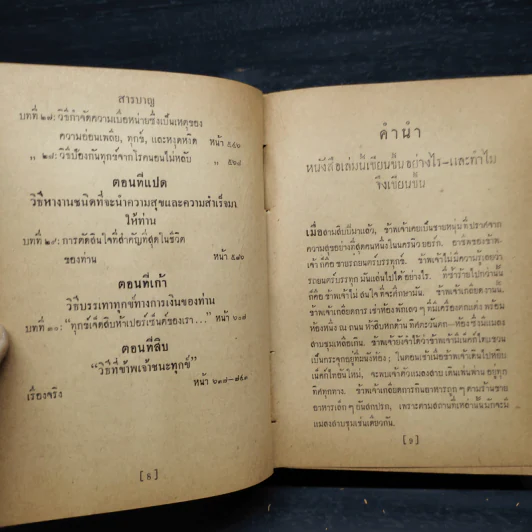 สารบาญ
บทที่ ๒๗: วิธีกำจัดความเบื่อหน่ายซึ่งเป็นเหตุของ
ความอ่อนเพลีย, ทุกข์, และหงุดหงิด หน้า ๕๔๖
„ ๒๘: วิธีป้องกันทุกข์จากโรคนอนไม่หลับ „ ๕๖๘
ตอนที่แปด
วิธีหางานชนิดที่จะนำความสุขและความสำเร็จมา
ให้ท่าน
บทที่ ๒๙: การตัดสินใจที่สำคัญที่สุดในชีวิต
ของท่าน หน้า ๕๘๖
ตอนที่เก้า
วิธีบรรเทาทุกข์ทางการเงินของท่าน
บทที่ ๓๐: “ทุกข์เจ็ดสิบห้าเปอร์เซ็นต์ของเรา...” หน้า ๖๐๗
ตอนที่สิบ
“วิธีที่ข้าพเจ้าชนะทุกข์”
เรื่องจริง หน้า ๖๓๘—๘๔๓
[ 8 ]
คำนำ
หนังสือเล่มนี้เขียนขึ้นอย่างไร–และทำไม
จึงเขียนขึ้น
เมื่อสามสิบปีมาแล้ว, ข้าพเจ้าเคยเป็นชายหนุ่มที่ปราศจาก
ความสุขอย่างที่สุดคนหนึ่งในนครนิวยอร์ก. อาชีพของข้าพ-
เจ้า ก็คือ ขายรถยนตร์บรรทุก. ข้าพเจ้าไม่มีความรู้เลยว่า
รถยนตร์บรรทุกมันแล่นไปได้อย่างไร. ที่ซ้ำร้ายไปกว่านั้น
ก็คือ ข้าพเจ้าไม่สนใจที่จะศึกษามัน. ข้าพเจ้าเกลียดงานนั้น.
ข้าพเจ้าเกลียดการเช่าห้องพักเลว ๆ
ห้องหนึ่ง ณ ถนนห้าสิบหกด้านทิศตะวันตก—ห้องซึ่งมีแมลง
สาบชุมเหลือเกิน. ข้าพเจ้ายังจำได้ว่าข้าพเจ้ามีเน็คไทแขวน
เป็นกระจุกอยู่ที่ผนังห้อง; ในตอนเช้าเมื่อข้าพเจ้าเดินไปหยิบ
เน็คไทอันใหม่, จะพบเจ้าตัวแมลงสาบเดินเพ่นพ่านอยู่ทุก
ทิศทุกทาง. ข้าพเจ้าเกลียดการกินอาหารถูก ๆ ตามร้านขาย
อาหารเล็ก ๆ อันสกปรก, เพราะตามสถานที่เหล่านั้นมักจะมี
แมลงสาบชุมเช่นเดียวกัน.
[ 9 ]